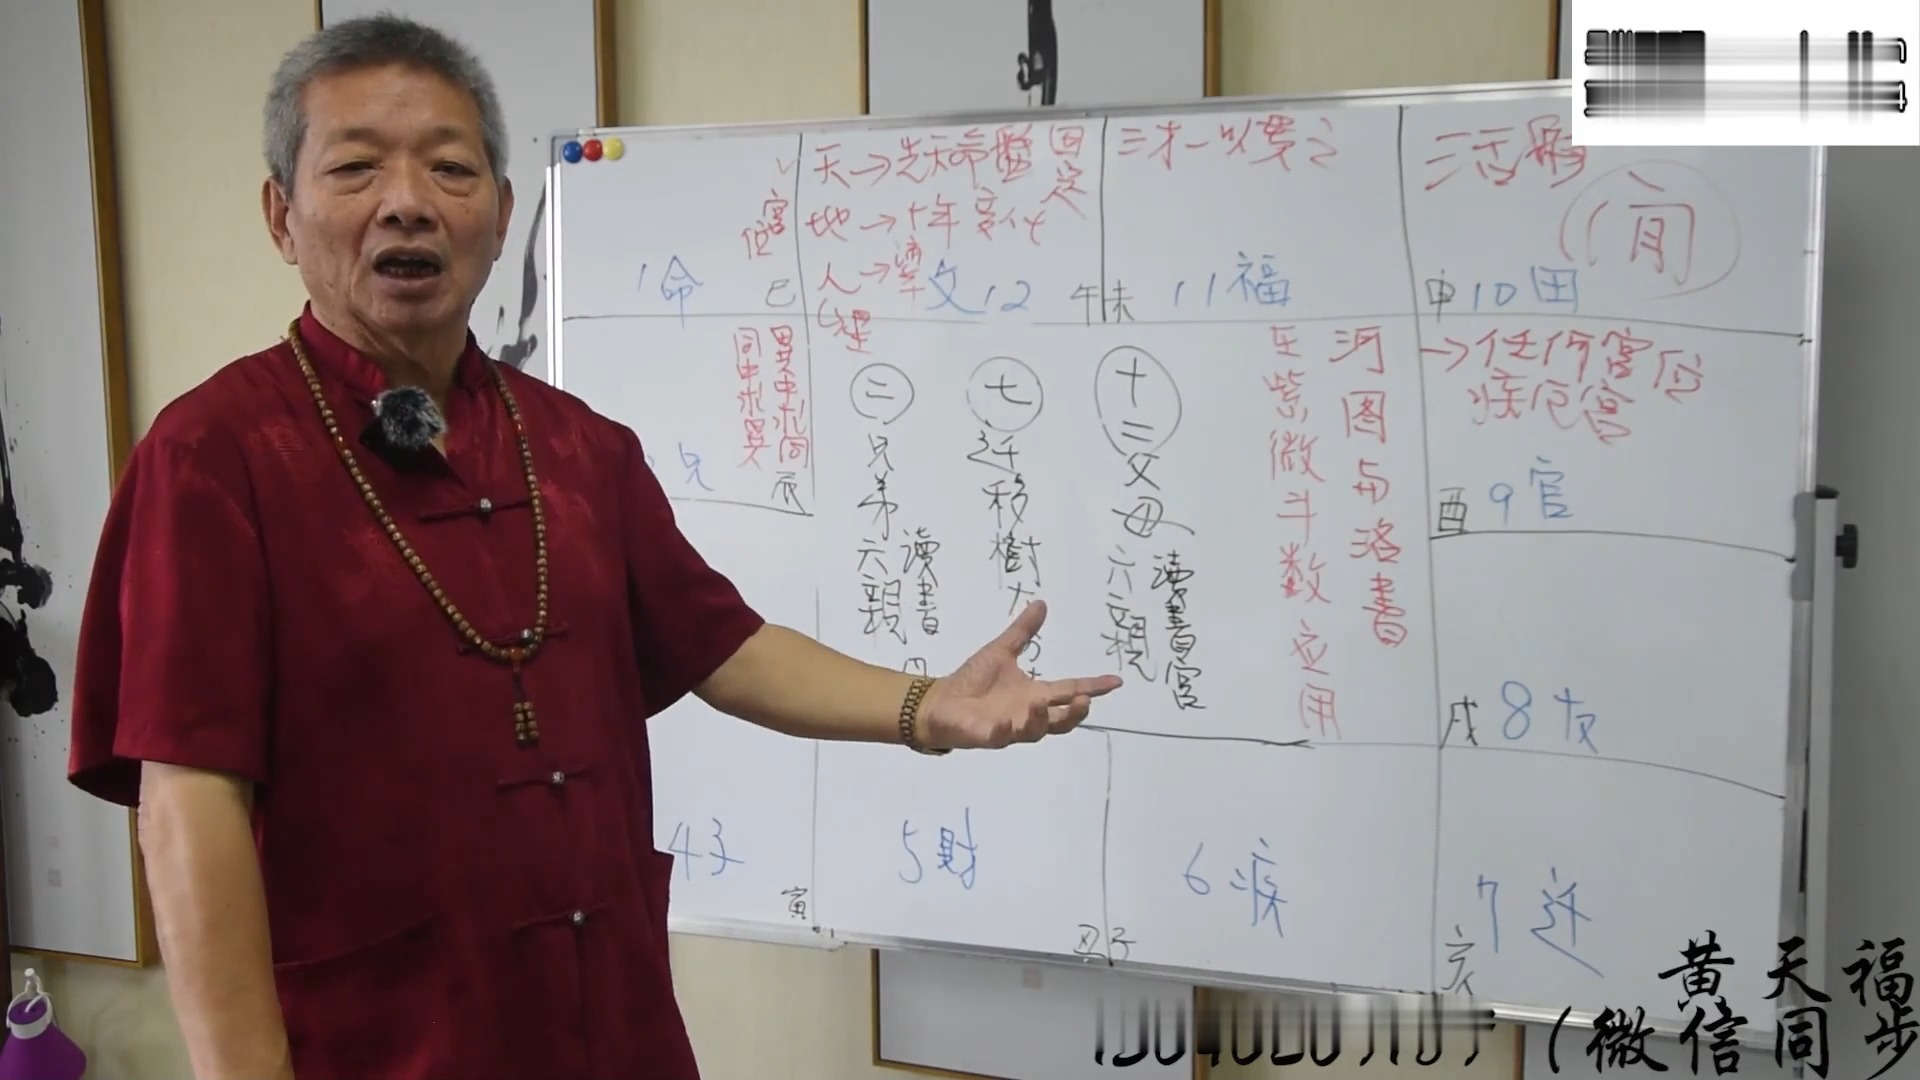 天→先天命盤固定
地→十年変化
人→流年
宮位
1命
巳
文12
午
三才一以贯之
未
11福
三活盤
申
10田
異中求同
同中求異
兄
辰
二
兄弟六親
讀書
七
迁移
樹
十二
父母六親
讀書宮
河图与洛書
至紫微斗数应用
→任何宮位
疾厄宮
酉
9官
戌
8友
4子
寅
5財
丑
子
6疾
亥
7迁
黄天福
(微信同步